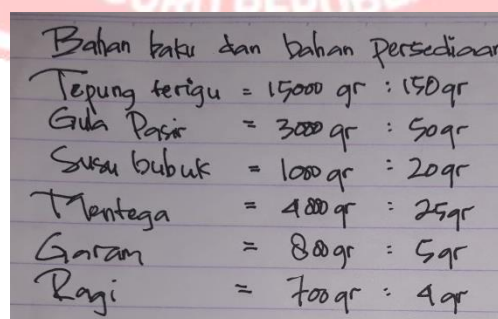 Bahan baku dan bahan persediaan
Tepung terigu = 15000 gr : 150 gr
Gula Pasir = 3000 gr : 50 gr
Susu bubuk = 1000 gr : 20 gr
Mentega = 4000 gr : 25 gr
Garam = 800 gr : 5 gr
Ragi = 700 gr : 4 gr